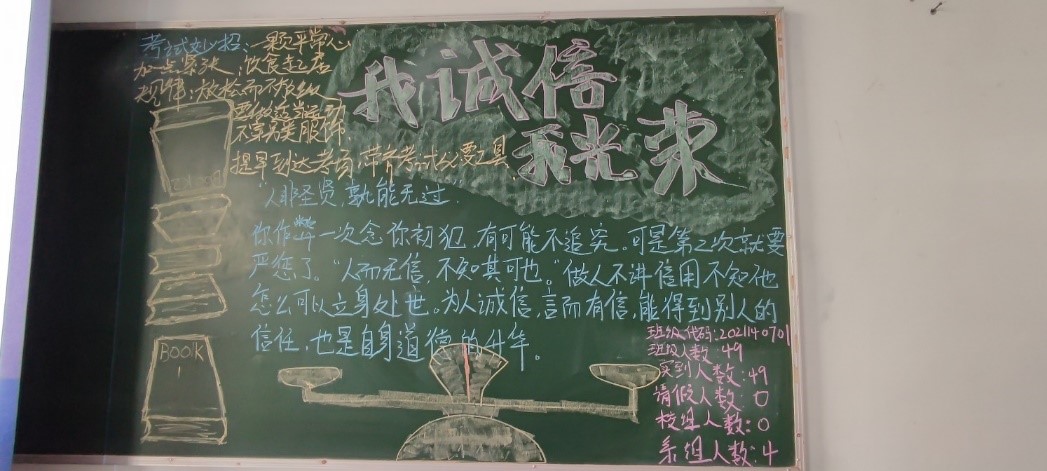 考试妙招：一颗平常心
加一点紧张，饮食起居
规律；放松而不放纵
要做适当运动
不穿另类服饰
提早到达考场，带齐考试必要工具
我诚信
我光荣
“人非圣贤，孰能无过”
你作弊一次念你初犯，有可能不追究。可是第二次就要
严惩了。“人而无信，不知其可也。”做人不讲信用不知他
怎么可以立身处世。为人诚信，言而有信，能得到别人的
信任，也是自身道德的升华。
BOOK
1
班级代码：2021140701
班级人数：49
实到人数：49
请假人数：0
校组人数：0
系组人数：4